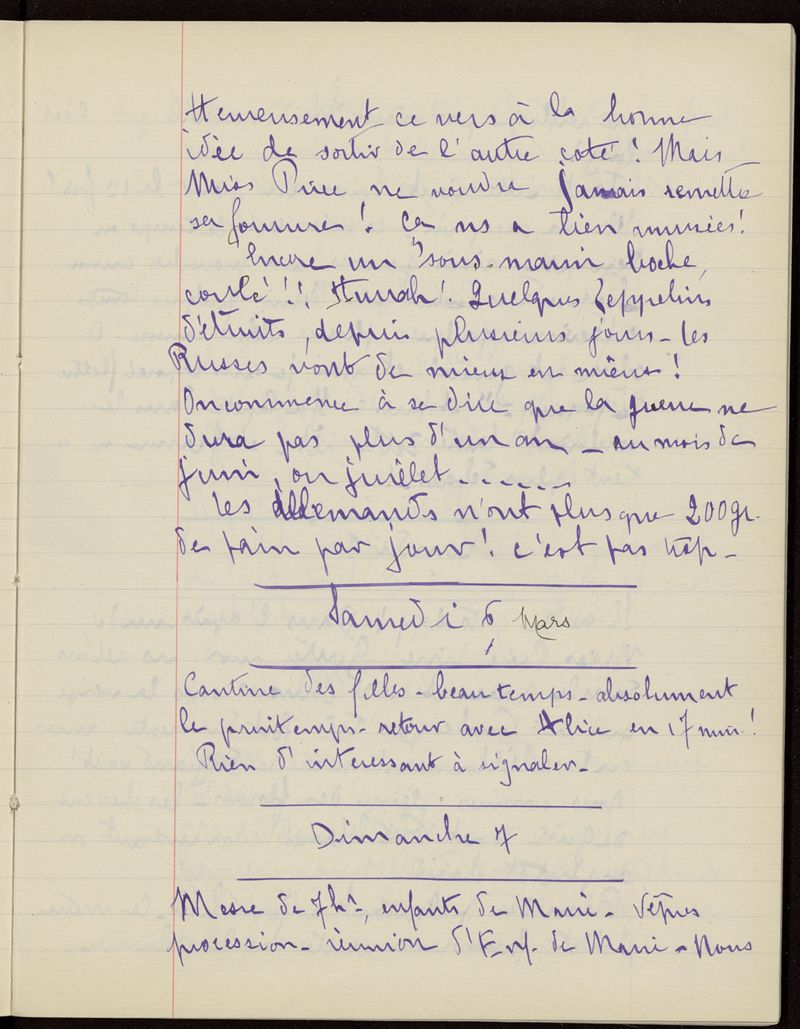 Heureusement ce vers à la bonne
idée de sortir de l'autre coté ! Mais
Miss Price ne voudra jamais remettre
sa fourrure ! Ça ns a bien amusées !
Encore un sous-marin boche,
coulé !!! Hurrah ! Quelques Zeppelins
détruits, depuis plusieurs jours - Les
Russes vont de mieux en mieux !
On commence à se dire que la guerre ne
dura pas plus d'un an - au mois de
juin, ou juillet.......
Les Allemands n'ont plus que 200gr.
de pain par jour ! C'est pas trop -
Samedi 6 Mars
Cantine des filles - beau temps - absolument
le printemps - retour avec Alice en 17 min. !
Rien d'interessant à signaler -
Dimanche 7
Messe de 7h, enfants de Marie - Vêpres
procession - réunion d'Enf. de Marie - Nous